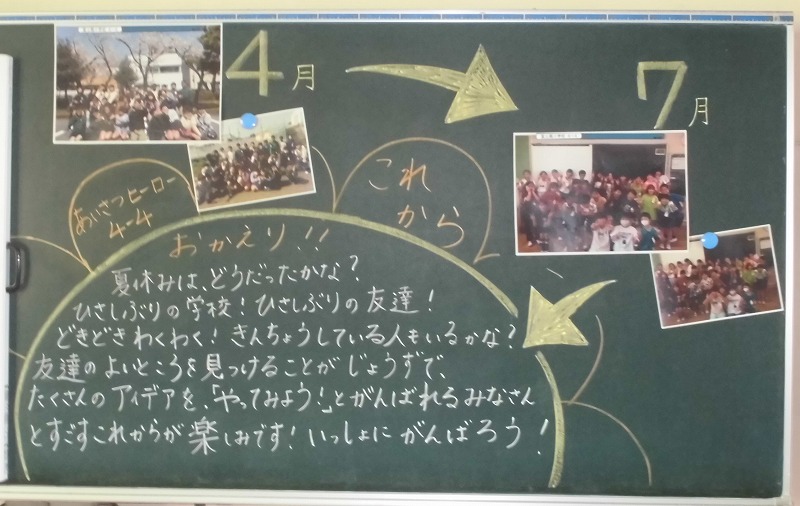 4月
7月
あいさつヒーロー
4-4
これ
から
おかえり!!
夏休みは、どうだったかな?
ひさしぶりの学校!ひさしぶりの友達!
どきどきわくわく!きんちょうしている人もいるかな?
友達のよいところを見つけることがじょうずで、
たくさんのアイデアを、「やってみよう!」とがんばれるみなさん
とすごすこれからが楽しみです!いっしょにがんばろう!